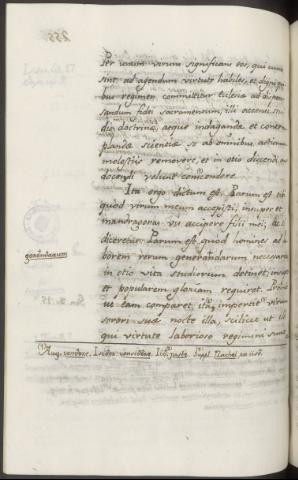 Per unum virum significans eos, qui cum
sint ad agendum virtute habiles, et digni qui-
bus regimen committitur Eclesiae ad dispen-
sandum fidei sacramentum, illi accensi stu-
dio doctrinae, atque indagandae et contem-
plandae scientiae se ab omnibus actionum
molestiis removere, et in otio discendi ac
docendi velint
Ita ergo dictum est: Parum est tibi
quod virum meum accepisti, insuper et
mandragoras vis accipere filii mei; ac si
diceretur: Parum est, quod homines ad la-
borem rerum generandarum necessarios
in otio vita studiorum detinet, insuper
et popularem gloriam requiret. Proinde
ut eam comparet, illa, impertit virum
sorori suae nocte illa, scilicet ut illi
qui virtute laborioso regimini sunt
generandarum